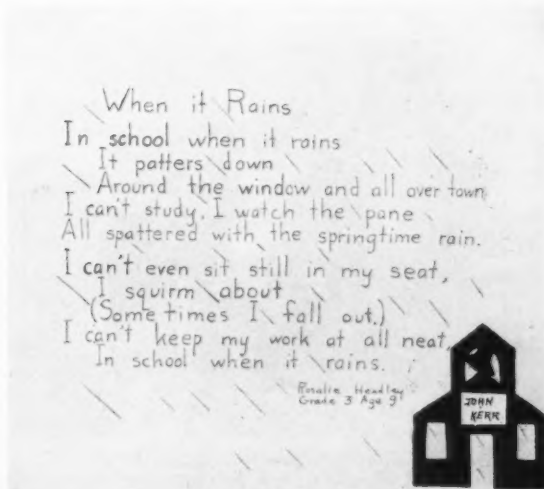 When it Rains
In school when it rains
It patters down
Around the window and all over town.
I can't study, I watch the pane
All spattered with the springtime rain.
I can't even sit still in my seat,
I squirm about
(Some times I fall out.)
I can't keep my work at all neat,
In school when it rains.
Rosalie Headley
Grade 3 Age 9
JOHN
KERR